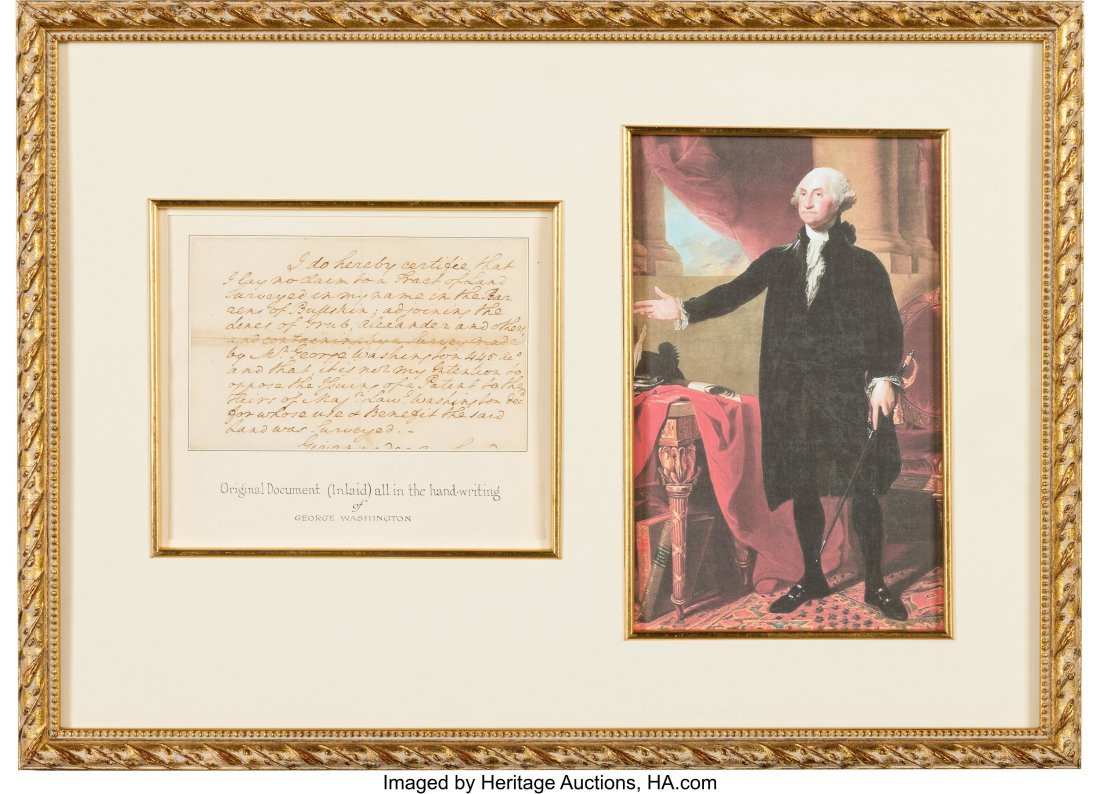 I do hereby certifie that
I lay no Claim to a Tract of Land
Surveyed in my name in the Bar
rens of Bullskin; adjoining the
Lines of Grub, Alexander and others,
and containing by a Survey made
by Mr. George Washington 445 Acs
and that it is not my Intention to
oppose the Issuing of a Patent to the
Heirs of Majr Law: Washington Decd
for whose use & Benefit the said
Land was Surveyed. -
Original Document (Inlaid) all in the hand-writing
of
GEORGE WASHINGTON
Imaged by Heritage Auctions, HA.com